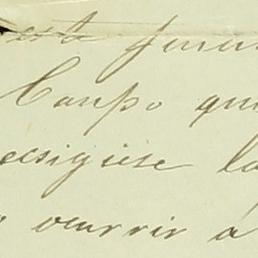 esta
Campo qu
ecsigiese la
ocurrir á